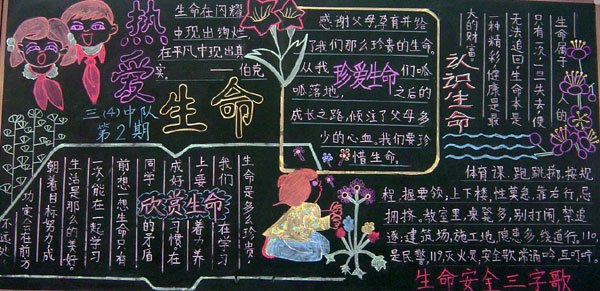 热爱
生命
三(4)中队
第2期
生命在闪耀
中现出绚烂
在平凡中现出真
实。
——伯克
感谢父母,孕育并给
了我们那么珍贵的生命。
从我们呱
呱落地,之后的
成长之路,倾注了父母多
少的心血。我们要珍
惜生命。
珍爱生命
认识生命
生命属于人的
只有一次,一旦失去便
无法追回生命本是
一种精彩,健康是最
大的财富。
欣赏生命
生命是多么珍贵!
我们在学习
上,要着力养
成好习惯,在
同学的矛盾
前想一想生命只有
一次能在一起学习
生活是那么的美好。
朝着目标努力成
功定会在前方
不远处
体育课,跑跳掷,按规
程,握要领,上下楼,性莫急,靠右行,忌
拥挤,教室里,桌凳多,别打闹,禁追
逐;建筑场,施工地,隐患多,绕道行,110,
是民警,119,灭火灵,安全歌,常诵吟,互叮咛。
生命安全三字歌